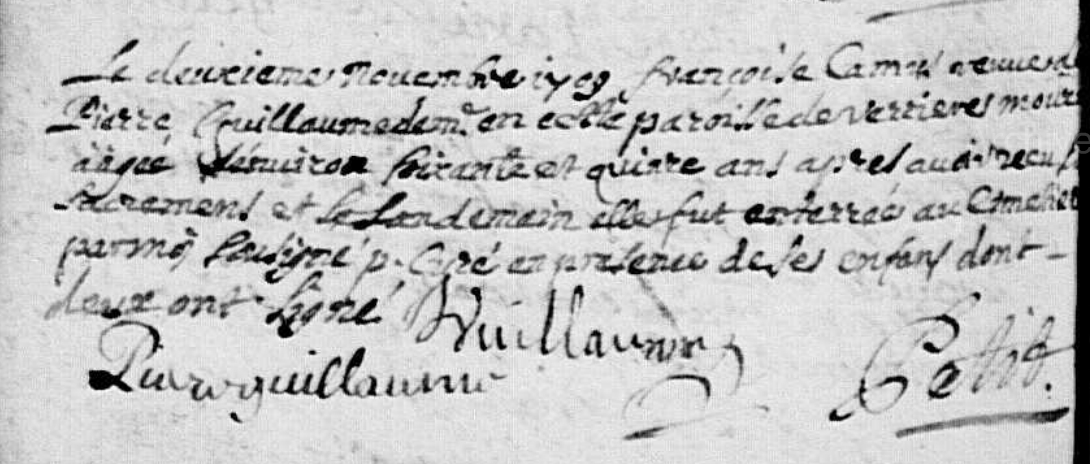 Le deuxieme novembre 1709 françoise Camus veuve de
Pierre Guillaume demt en cette paroisse de verrieres mourut
aagée denviron soixante et quinze ans apres avoir receu les
sacremens et le Landemain elle fut enterrée au Cimetiere
par moy soussigné p. Curé en presence de ses enfans dont
deux ont signé
Wuillaume
Pierre guillaume
Petit.